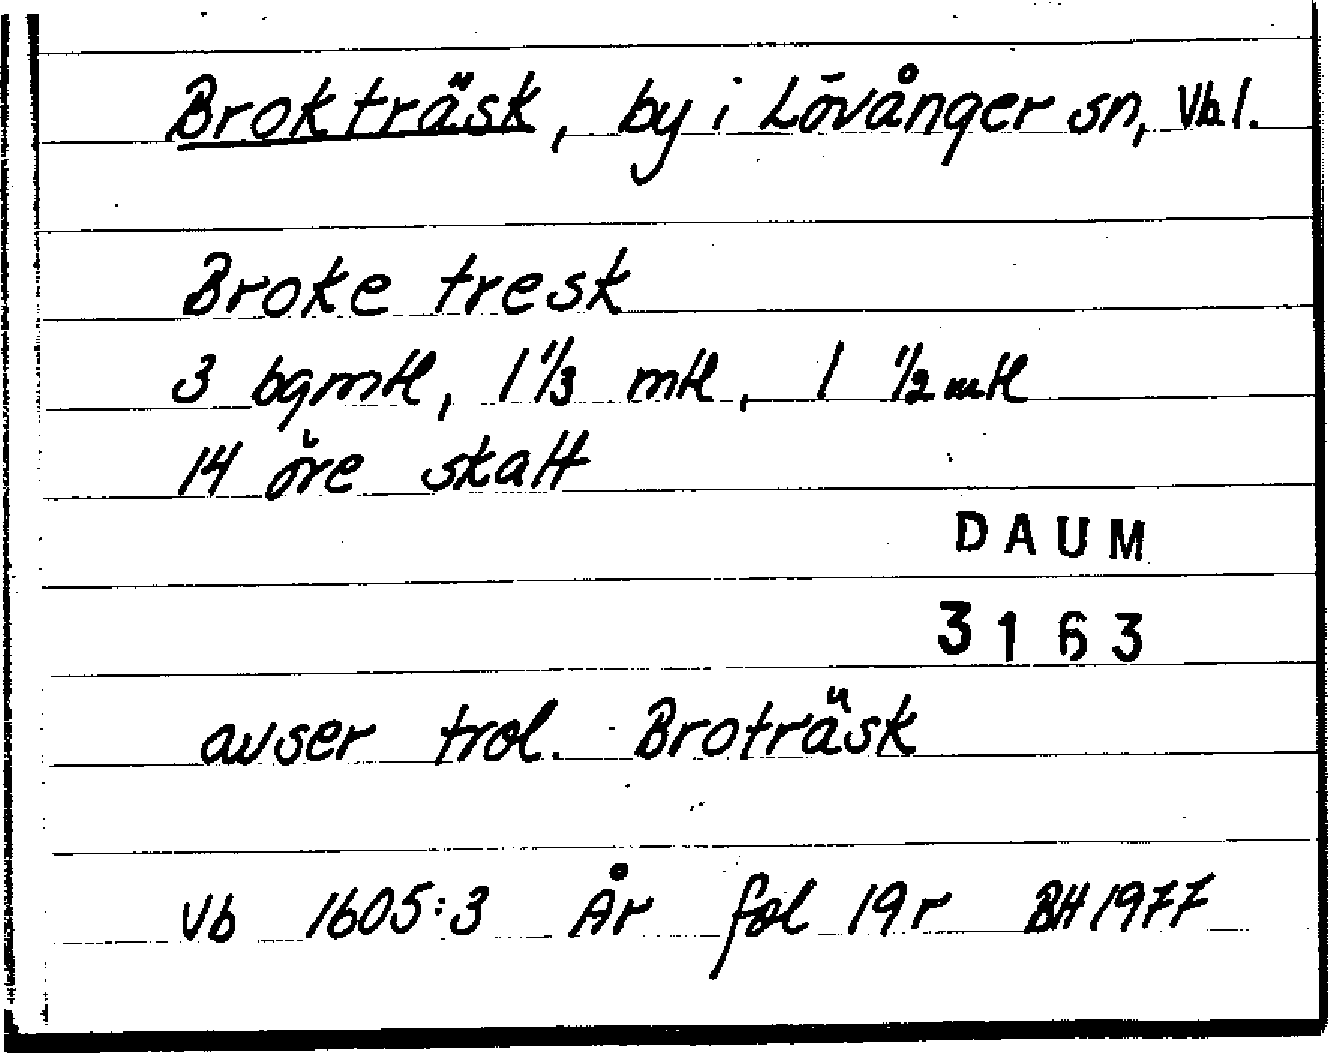 Brokträsk, by i Lövånger sn, Vb l.
Broke tresk
3 bgmtl, 1 1/3 mtl, 1 1/2 mtl
14 öre skatt
DAUM
3163
avser trol. Broträsk
Vb 1605:3 År fol 19r BH 1977